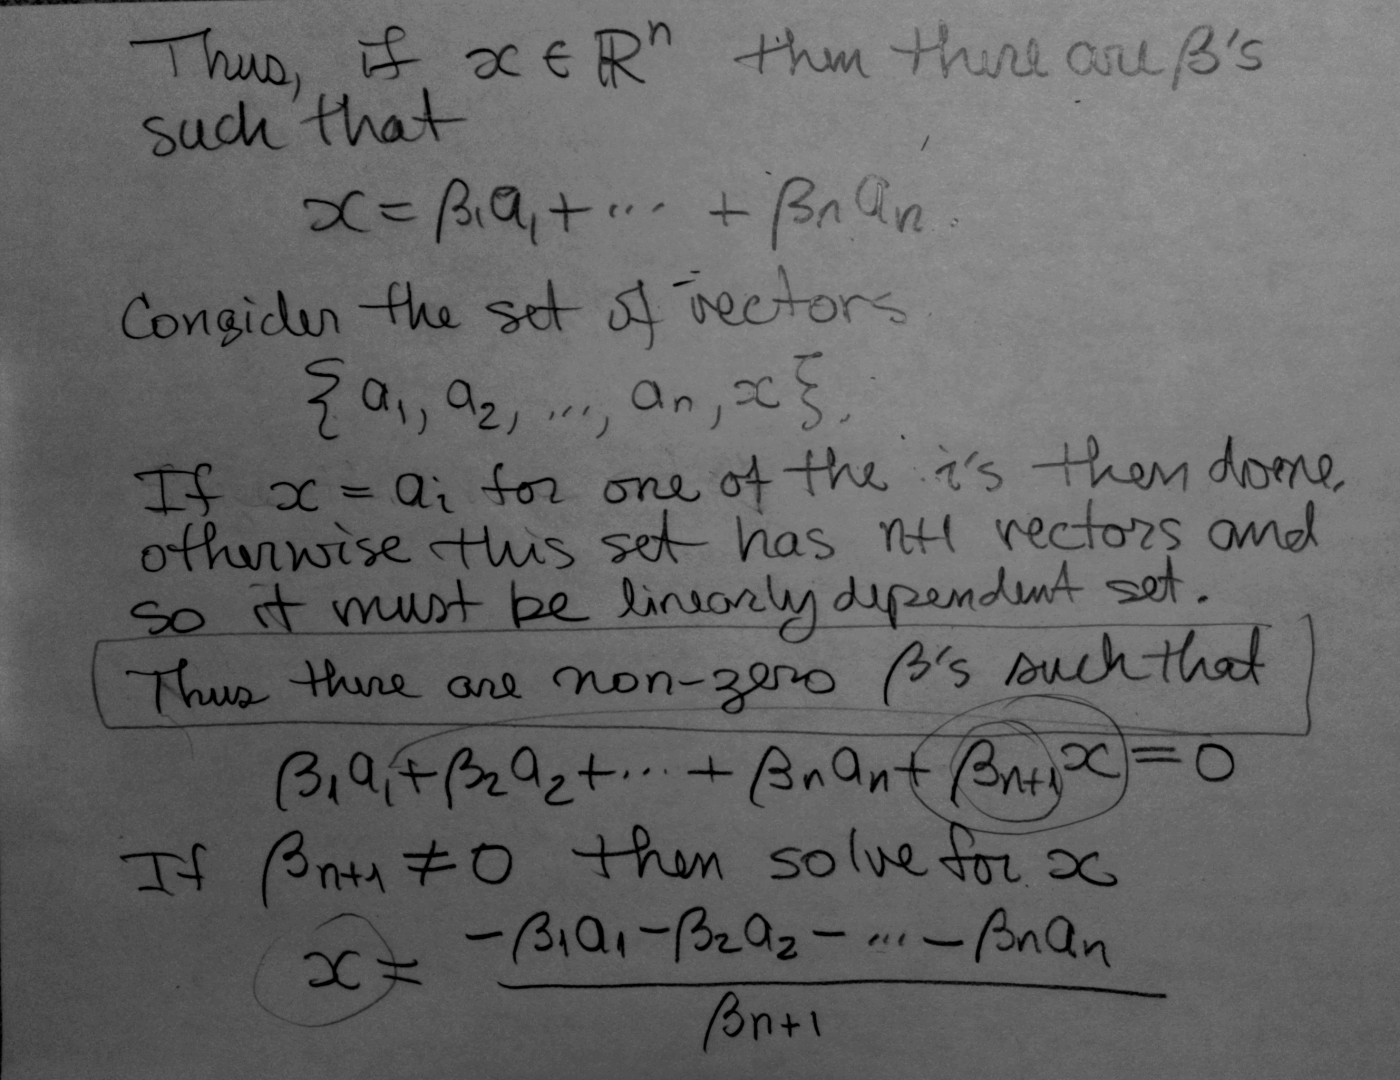 Thus, if x ∈ ℝⁿ then there are β's
such that
x = β₁a₁ + ... + βₙaₙ.
Consider the set of vectors
{a₁, a₂, ..., aₙ, x}.
If x = aᵢ for one of the i's then done,
otherwise this set has n+1 vectors and
so it must be linearly dependent set.
Thus there are non-zero β's such that
β₁a₁ + β₂a₂ + ... + βₙaₙ + βₙ₊₁x = 0
If βₙ₊₁ ≠ 0 then solve for x
x = (-β₁a₁ - β₂a₂ - ... - βₙaₙ) / βₙ₊₁